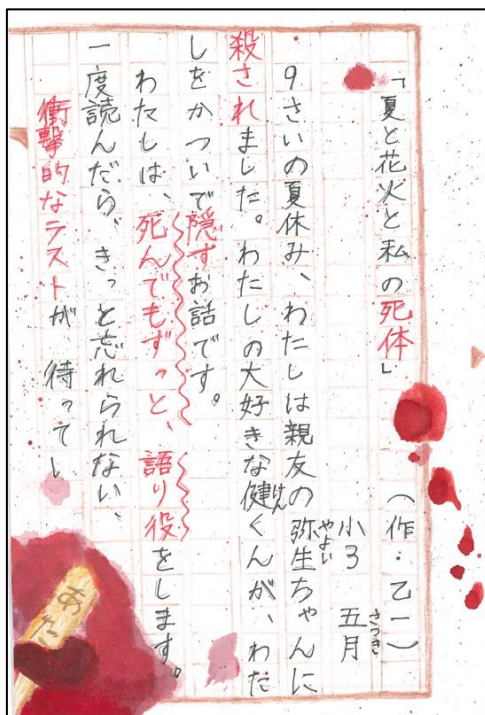 「夏と花火と私の死体」（作・乙一）
小3 五月
さつき
9さいの夏休み、わたしは親友の弥生ちゃんに
やよい
殺されました。わたしの大好きな健くんが、わた
けん
しをかついで隠すお話です。
わたしは、死んでもずっと、語り役をします。
一度読んだら、きっと忘れられない、
衝撃的なラストが、待ってい
あた